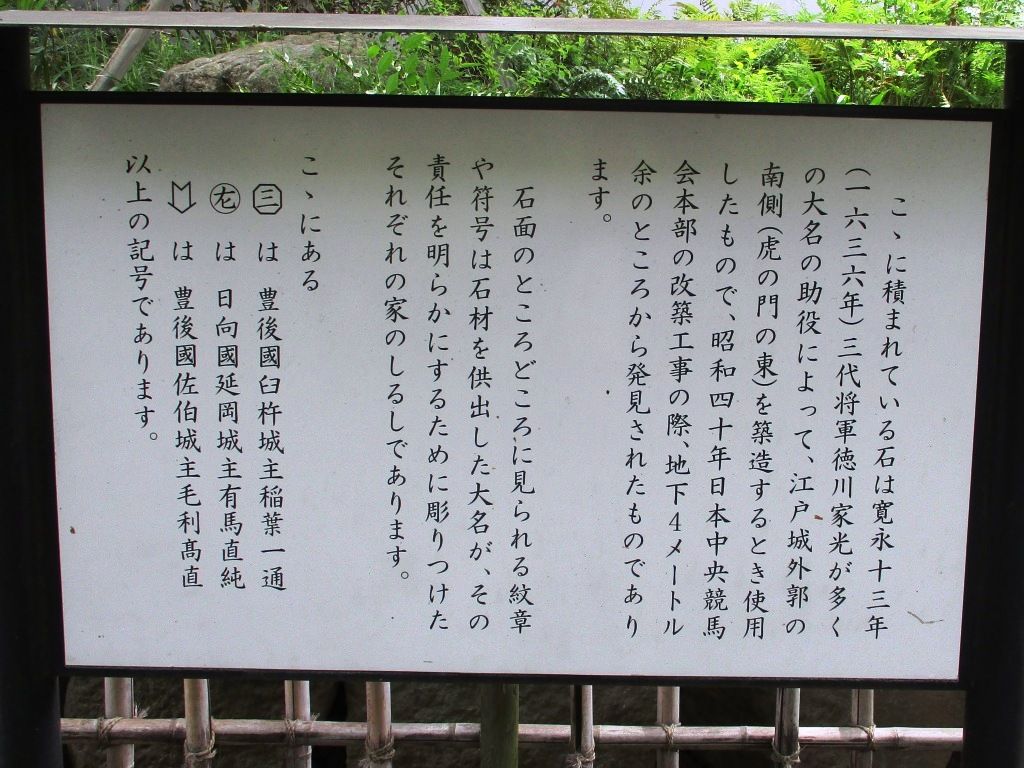 こゝに積まれている石は寛永十三年
（一六三六年）三代将軍徳川家光が多く
の大名の助役によって、江戸城外郭の
南側（虎の門の東）を築造するとき使用
したもので、昭和四十年日本中央競馬
会本部の改築工事の際、地下4メートル
余のところから発見されたものであり
ます。
石面のところどころに見られる紋章
や符号は石材を供出した大名が、その
責任を明らかにするために彫りつけた
それぞれの家のしるしであります。
こゝにある
三 は 豊後國臼杵城主稲葉一通
は 日向國延岡城主有馬直純
は 豊後國佐伯城主毛利髙直
以上の記号であります。